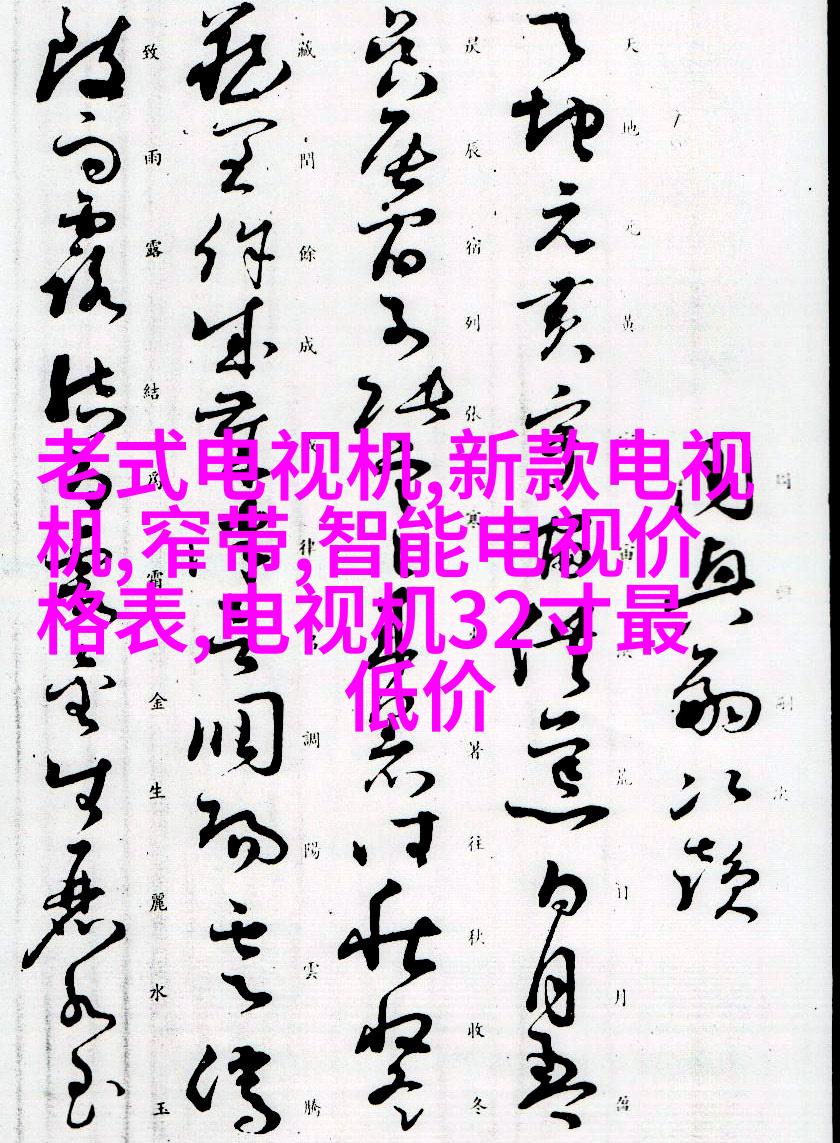 老式电视机,新款电视
机,窄带,智能电视价
格表,电视机32寸最
低价
周興嗣次韻
天地元黃宇宙洪荒日月盈
昃辰宿列張寒來暑往秋收冬
藏閏餘成歲律呂調陽雲騰
致雨露結為霜金生麗水玉